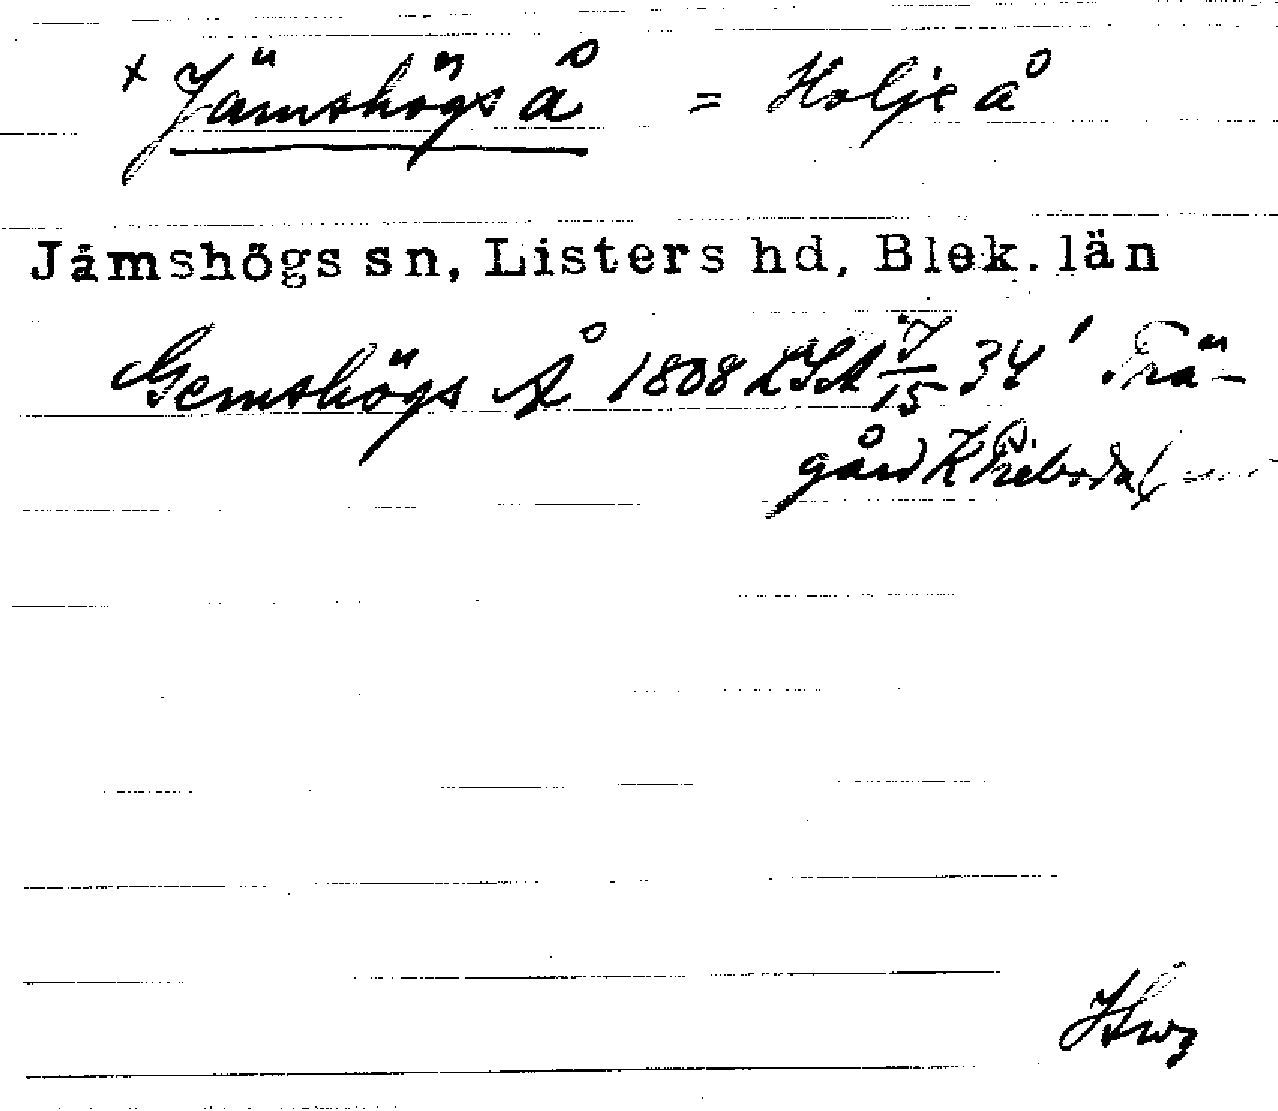 x Jämshögs å = Holje å
Jämshögs sn, Listers hd, Blek. län
Gemshögs Å 1808 LSA 7/15 34' Trä-
gård K Priboda